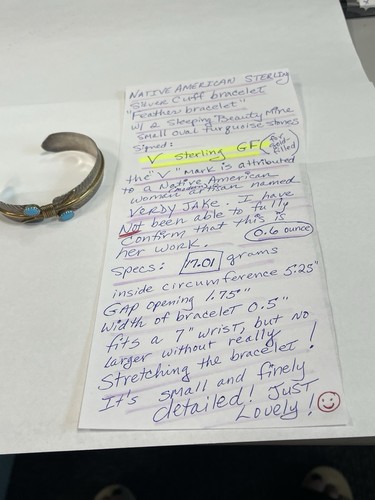 NATIVE AMERICAN STERLING
Silver Cuff bracelet
"Feather bracelet"
w/ 2 Sleeping Beauty Mine
small oval turquoise stones
S'gned:
V sterling GF (for gold-filled)
the "V" mark is attributed
to a Native American
woman artisan named
VERDY JAKE. I have
Not been able to fully
Confirm that this is
her work. 0.6 ounce
Specs: 17.01 grams
inside circumference 5.25"
GAP opening 1.75"
Width of bracelet 0.5"
fits a 7" wrist, but no
larger without really
Stretching the bracelet!
It's small and finely
detailed! JUST
Lovely!